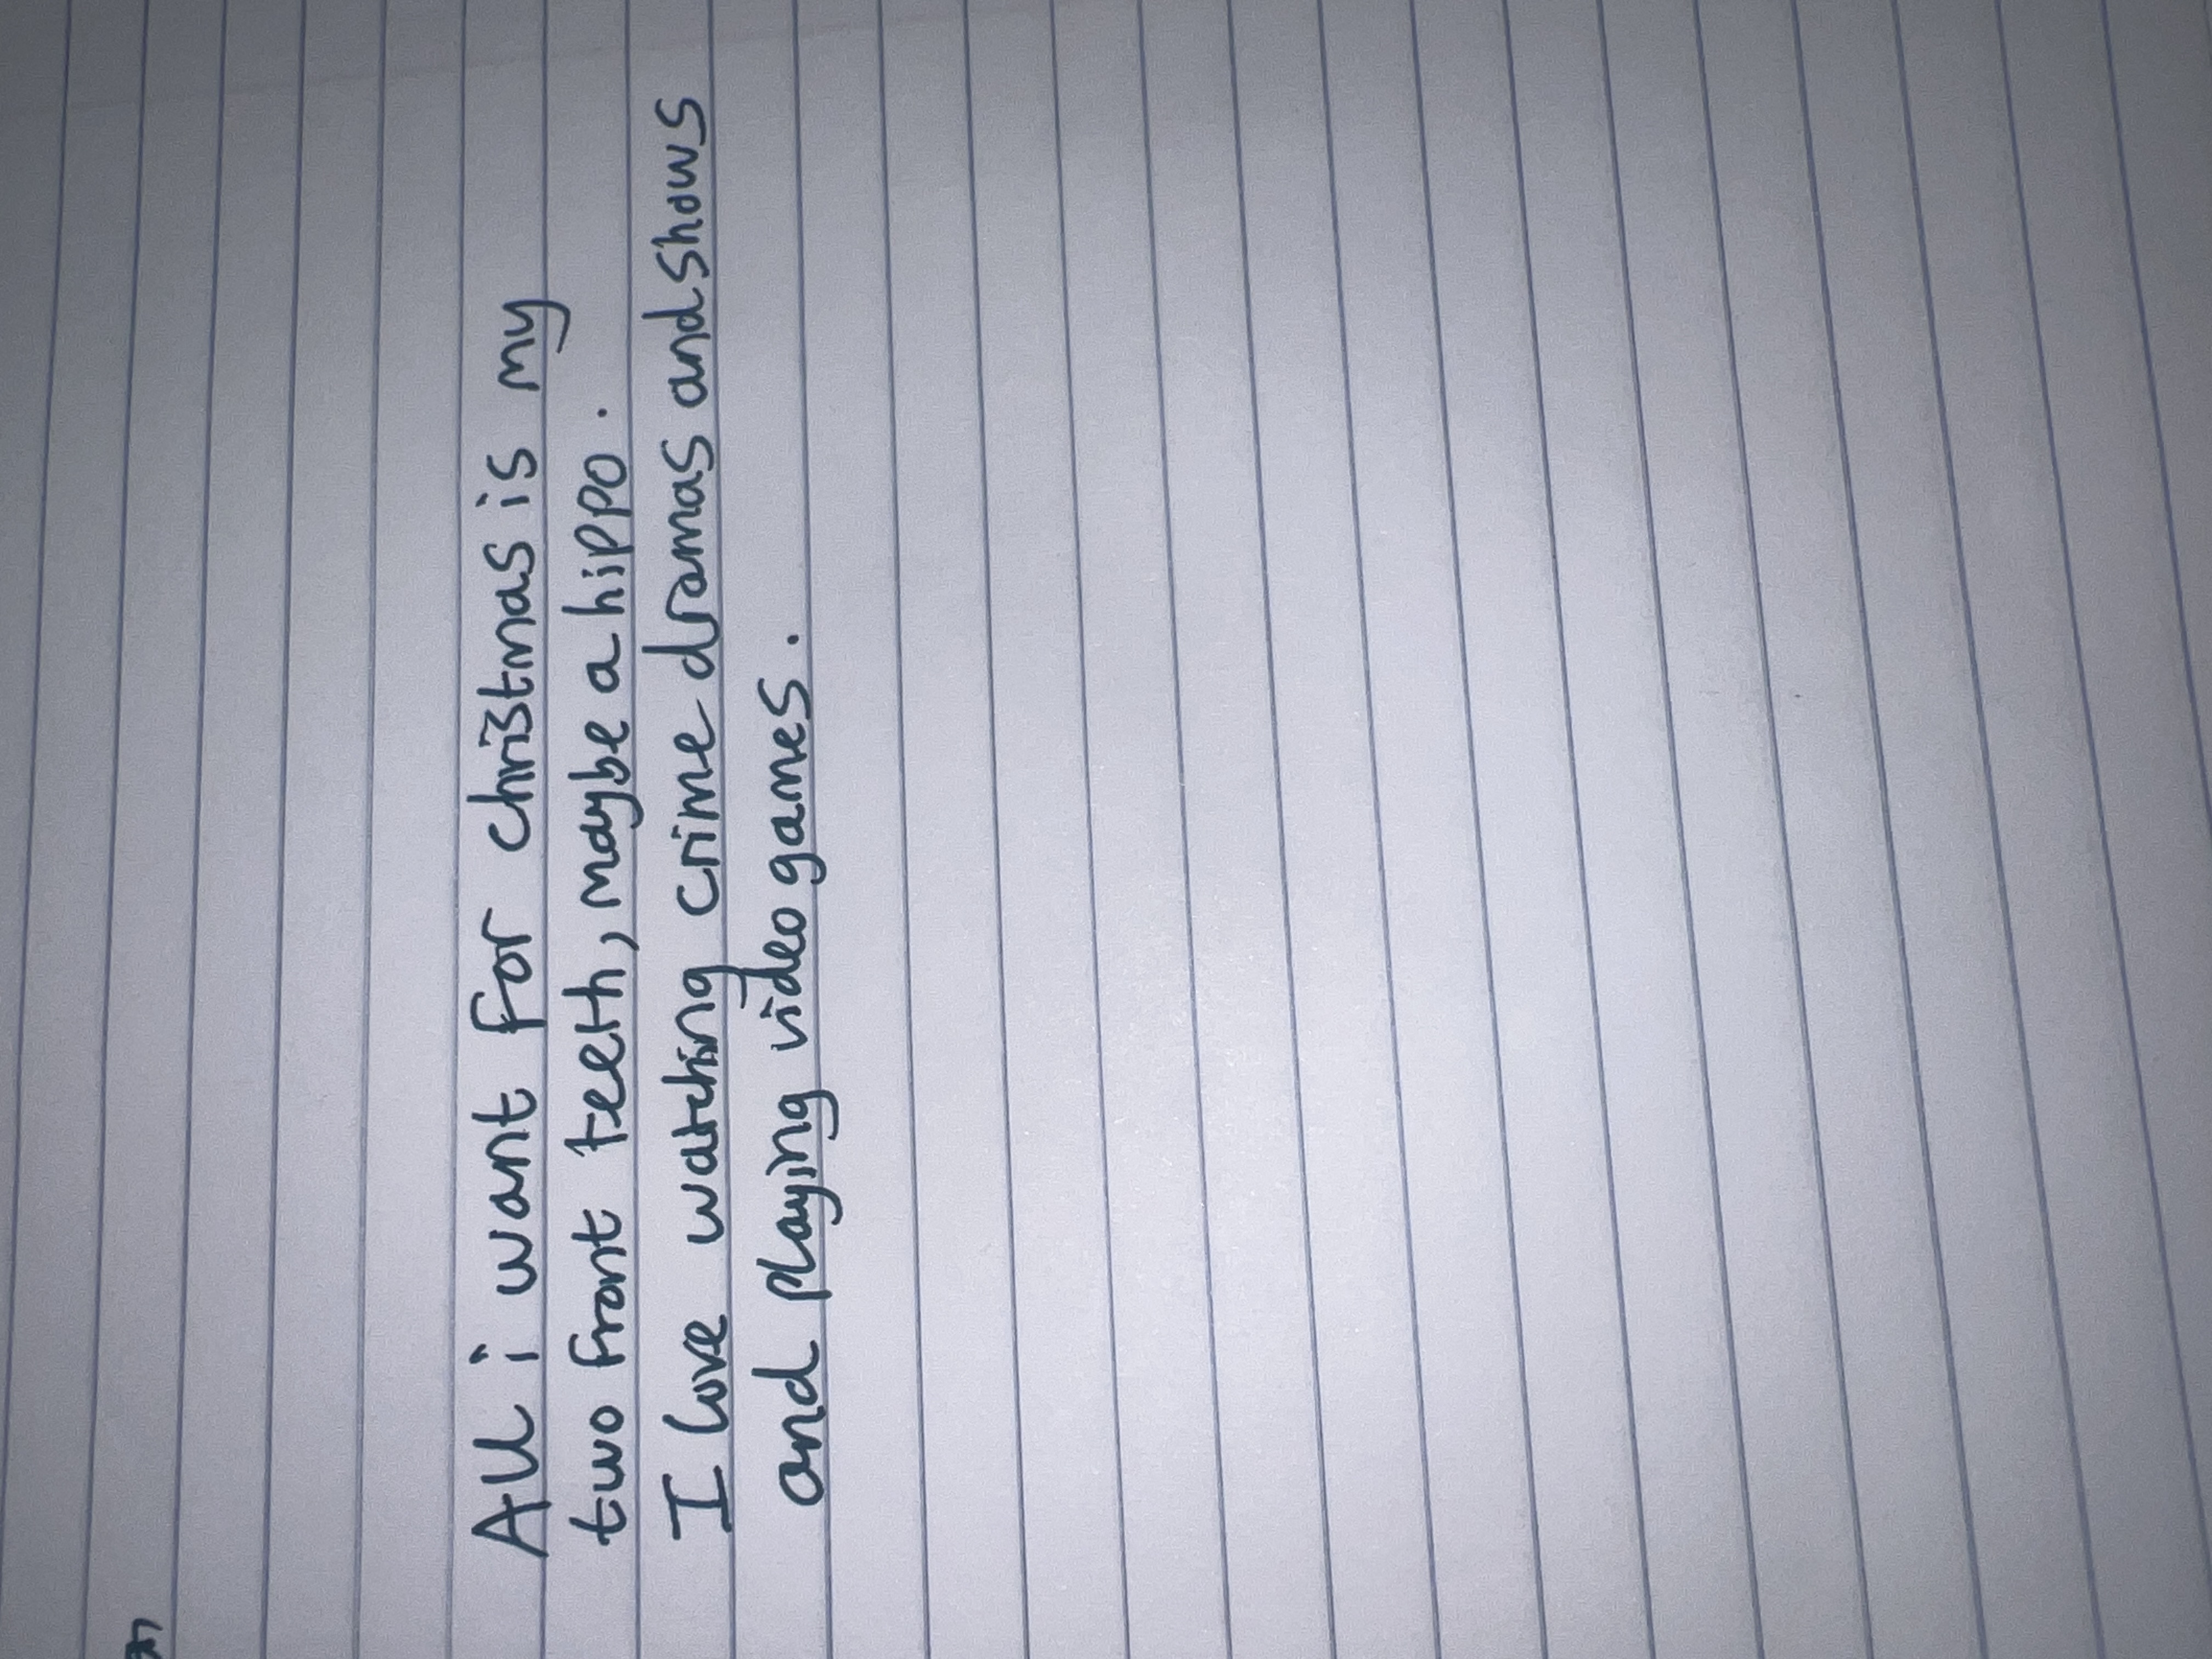 All i want for christmas is my
two front teeth, maybe a hippo.
I love watching crime dramas and shows
and playing video games.